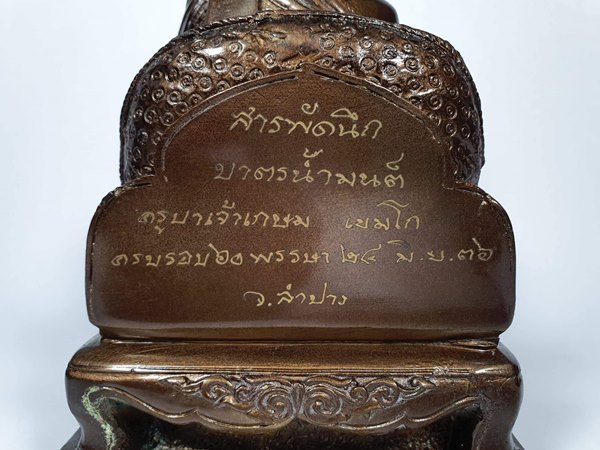 สารพัดนึก
บาตรน้ำมนต์
ครูบาเจ้าเกษม เขมโก
ครบรอบ ๖๐ พรรษา ๒๔ มิ.ย. ๓๖
จ.ลำปาง